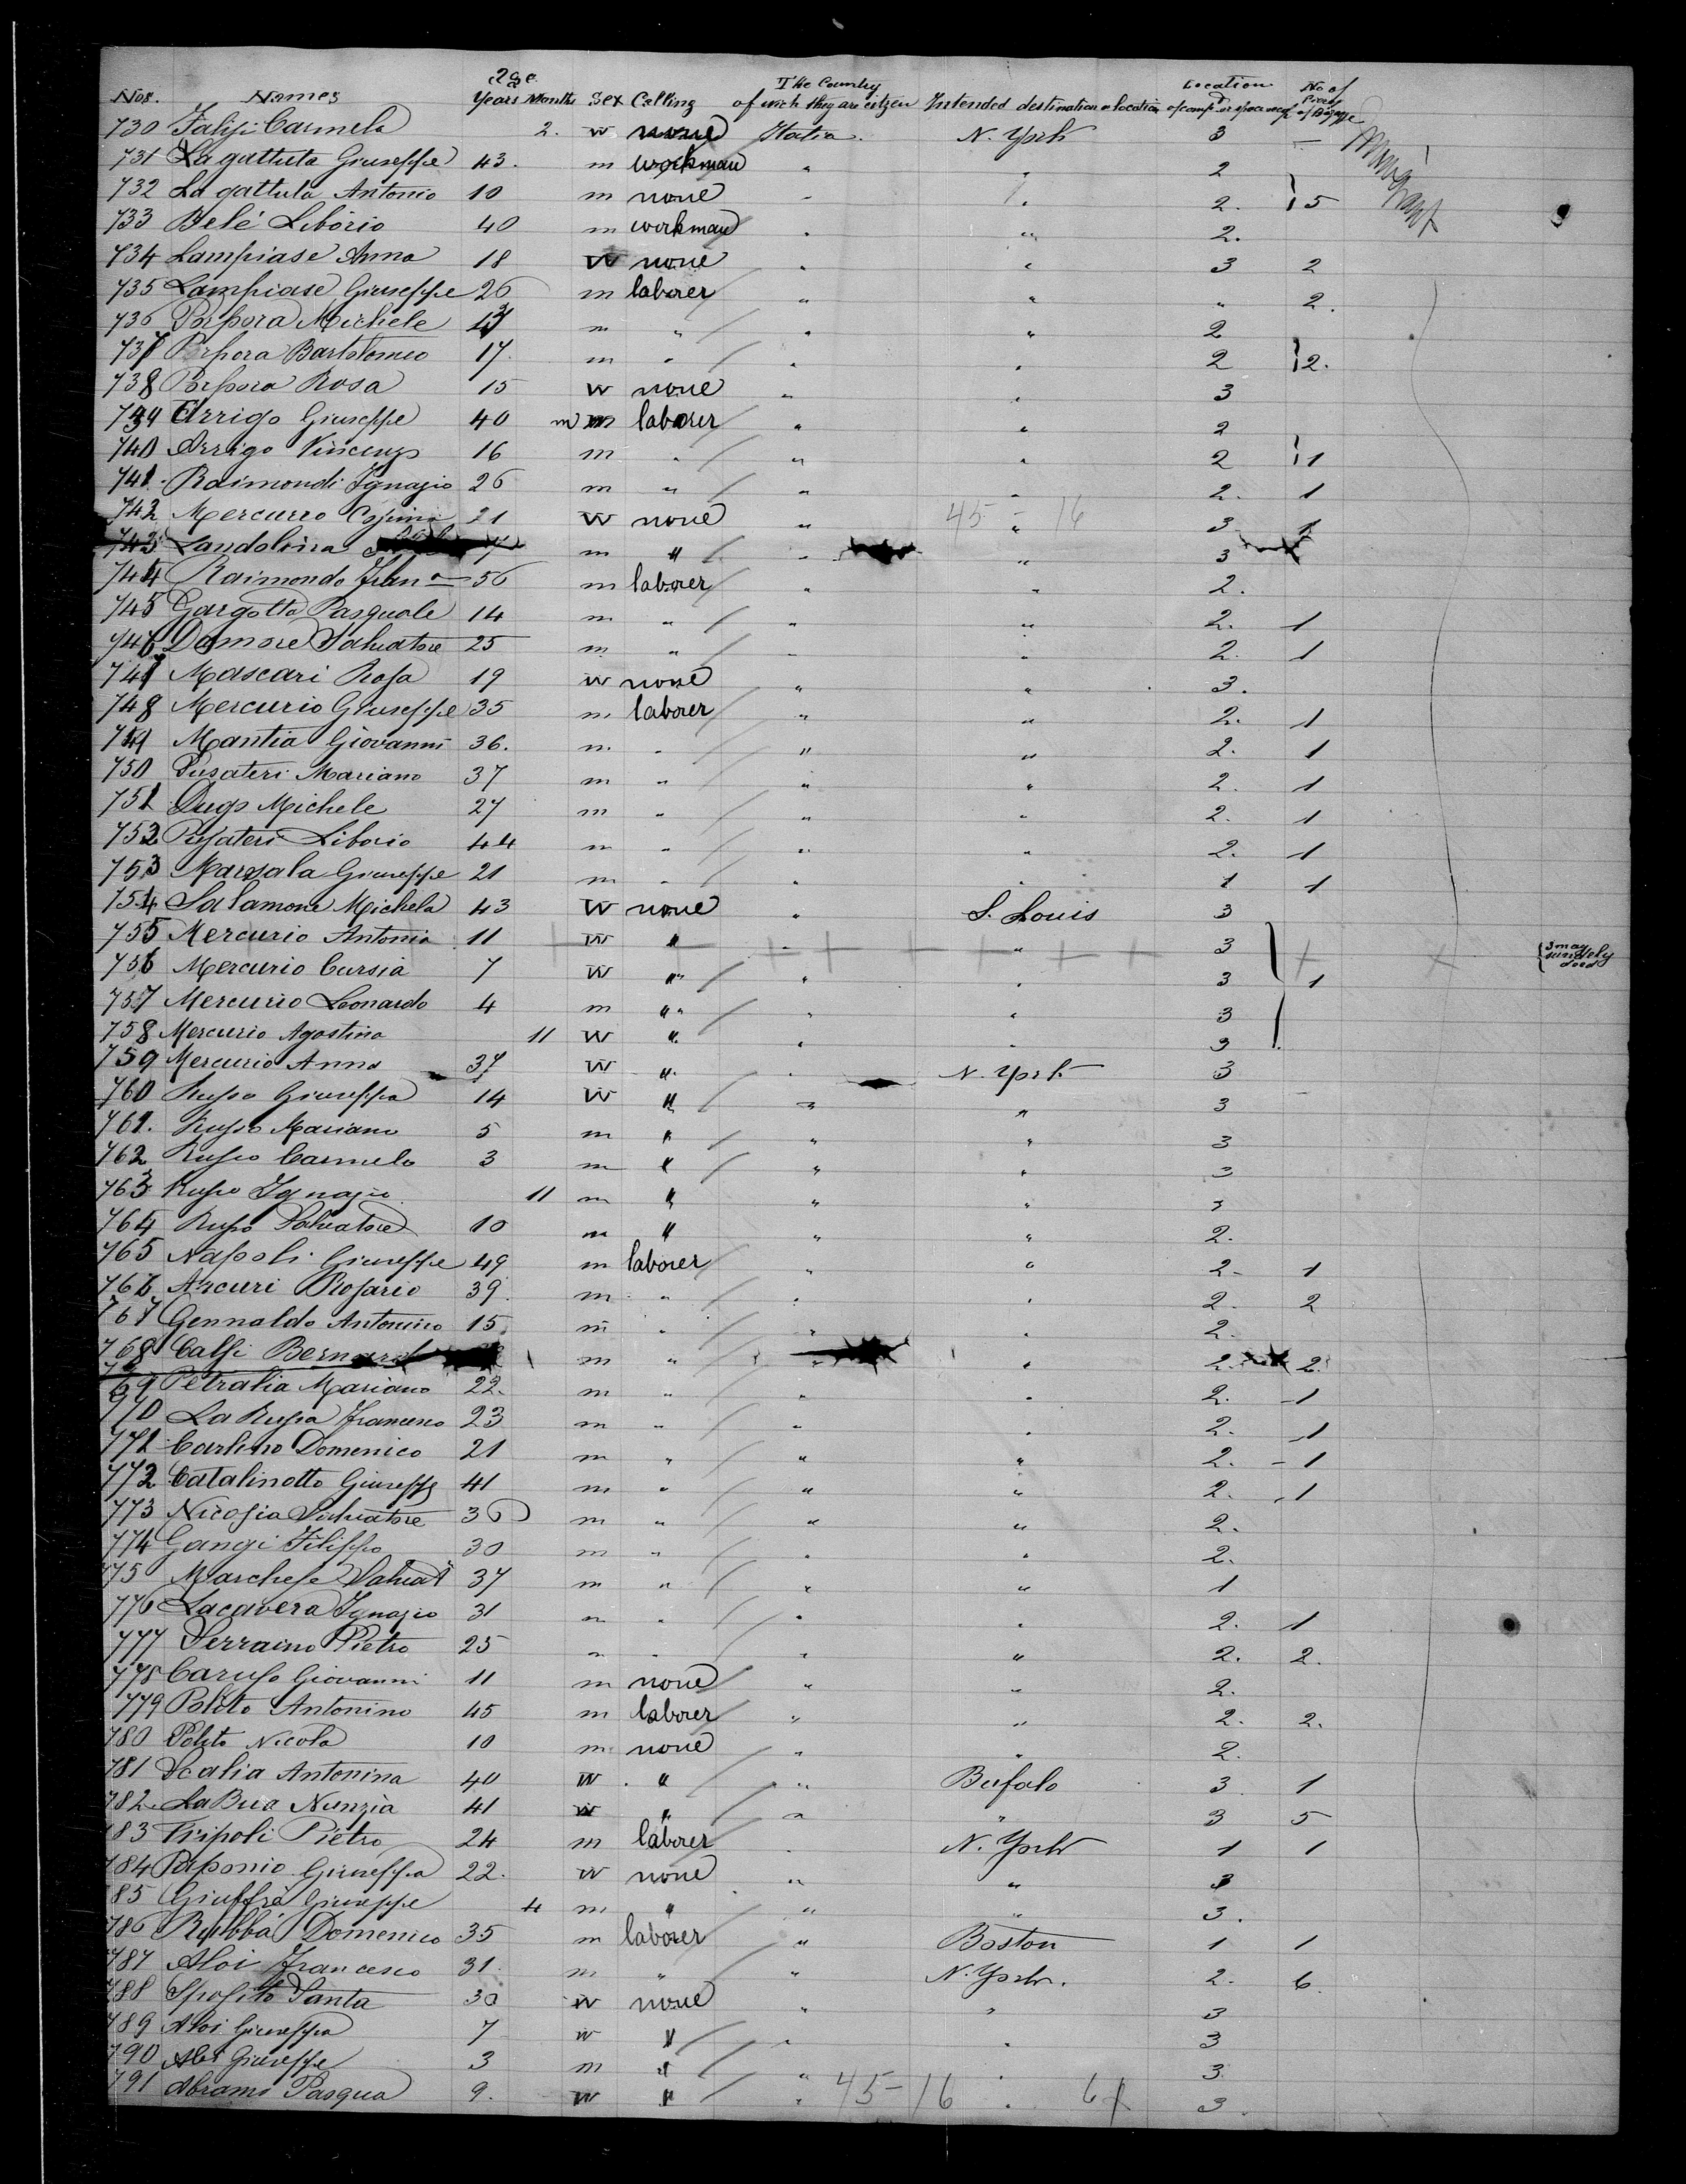 Nos. Names Age Years Months Sex Calling The Country of wich they are citizen Intended destination or location Location of comp.t or space occup. No of Pieces of Baggage
Emigrant
730 Falisi Carmela 2. w none Italia N. York 3 –
731 La gattuta Giuseppe 43. m workman " " 2
732 La gattuta Antonio 10 m none " " 2. } 5
733 Belé Liborio 40 m workman " " 2.
734 Lampiase Anna 18 w none " " 3 2
735 Lampiase Giuseppe 26 m laborer " " " 2.
736 Porpora Michele m " " " 2
737 Porpora Bartolomeo 17. m " " " 2 } 2.
738 Porpora Rosa 15 w none " " 3
739 Arrigo Giuseppe 40 m laborer " " 2
740 Arrigo Vincenzo 16 m " " " 2 } 1
741. Raimondi Ignazio 26 m " " " 2. 1
742 Mercurro 21 w none " 45 - 16 " 3 1
743 Landolina 7 m " " " 3
744 Raimondo Fran 56 m laborer " " 2.
745 Gargotta Pasquale 14 m " " " 2. 1
746 Damore Salvatore 25 m " " " 2. 1
747 Mascari Rosa 19 w none " " 3.
748 Mercurio Giuseppe 35 m laborer " " 2. 1
749 Mantia Giovanni 36. m " " " 2. 1
750 Pusateri Mariano 37 m " " " 2. 1
751 Dugo Michele 27 m " " " 2. 1
752 Pusateri Liborio 44 m " " " 2. 1
753 Marsala Giuseppe 21 m " " " 1 1
754 Salamone Michela 43 w none " S. Louis 3
755 Mercurio Antonia 11 w " " " 3 3 may sundely doed
756 Mercurio Cursia 7 w " " " 3 } 1
757 Mercurio Leonardo 4 m " " " 3
758 Mercurio Agostina 11 w " " " 3
759 Mercurio Anna 37 w " " N. York 3
760 Russo Giuseppa 14 w " " " 3
761. Russo Mariano 5 m " " " 3
762 Russo Carmelo 3 m " " " 3
763 Russo Ignazio 11 m " " " 3
764 Russo Salvatore 10 m " " " 2.
765 Napoli Giuseppe 49 m laborer " " 2 - 1
766 Arcuri Rosario 39. m " " " 2. 2
767 Gennaldo Antonino 15 m " " " 2.
768 Calfi Bernard m " " " 2. 2.
769 Petralia Mariano 22. m " " " 2. - 1
770 La Russa Francesco 23 m " " " 2. 1
771 Carlino Domenico 21 m " " " 2. - 1
772 Catalinotto Giuseppe 41 m " " " 2. 1
773 Nicosia Salvatore 36 m " " " 2.
774 Gangi Filippo 30 m " " " 2.
775 Marchese Salvat 37 m " " " 1
776 Lacavera Ignazio 31 m " " " 2. 1
777 Serraino Pietro 25 m " " " 2. 2.
778 Caruso Giovanni 11 m none " " 2.
779 Polito Antonino 45 m laborer " " 2. 2.
780 Polito Nicola 10 m none " " 2.
781 Scalia Antonina 40 w " " Bufalo 3 1
782. La Bua Nunzia 41 w " " " 3 5
783 Tripoli Pietro 24 m laborer " N. York 1 1
784 Giuseppa 22. w none " " 3
785 Giuffrà Giuseppe 4 m " " " 3.
786 Domenico 35 m laborer " Boston 1 1
787 Aloi Francesco 31. m " " N. York. 2. 6.
788 Sposito Santa 30 w none " " 3
789 Aloi Giuseppa 7 w " " " 3
790 Aloi Giuseppe 3 m " " " 3
791 Abramo Pasqua 9. w " " 45-16 " 3.